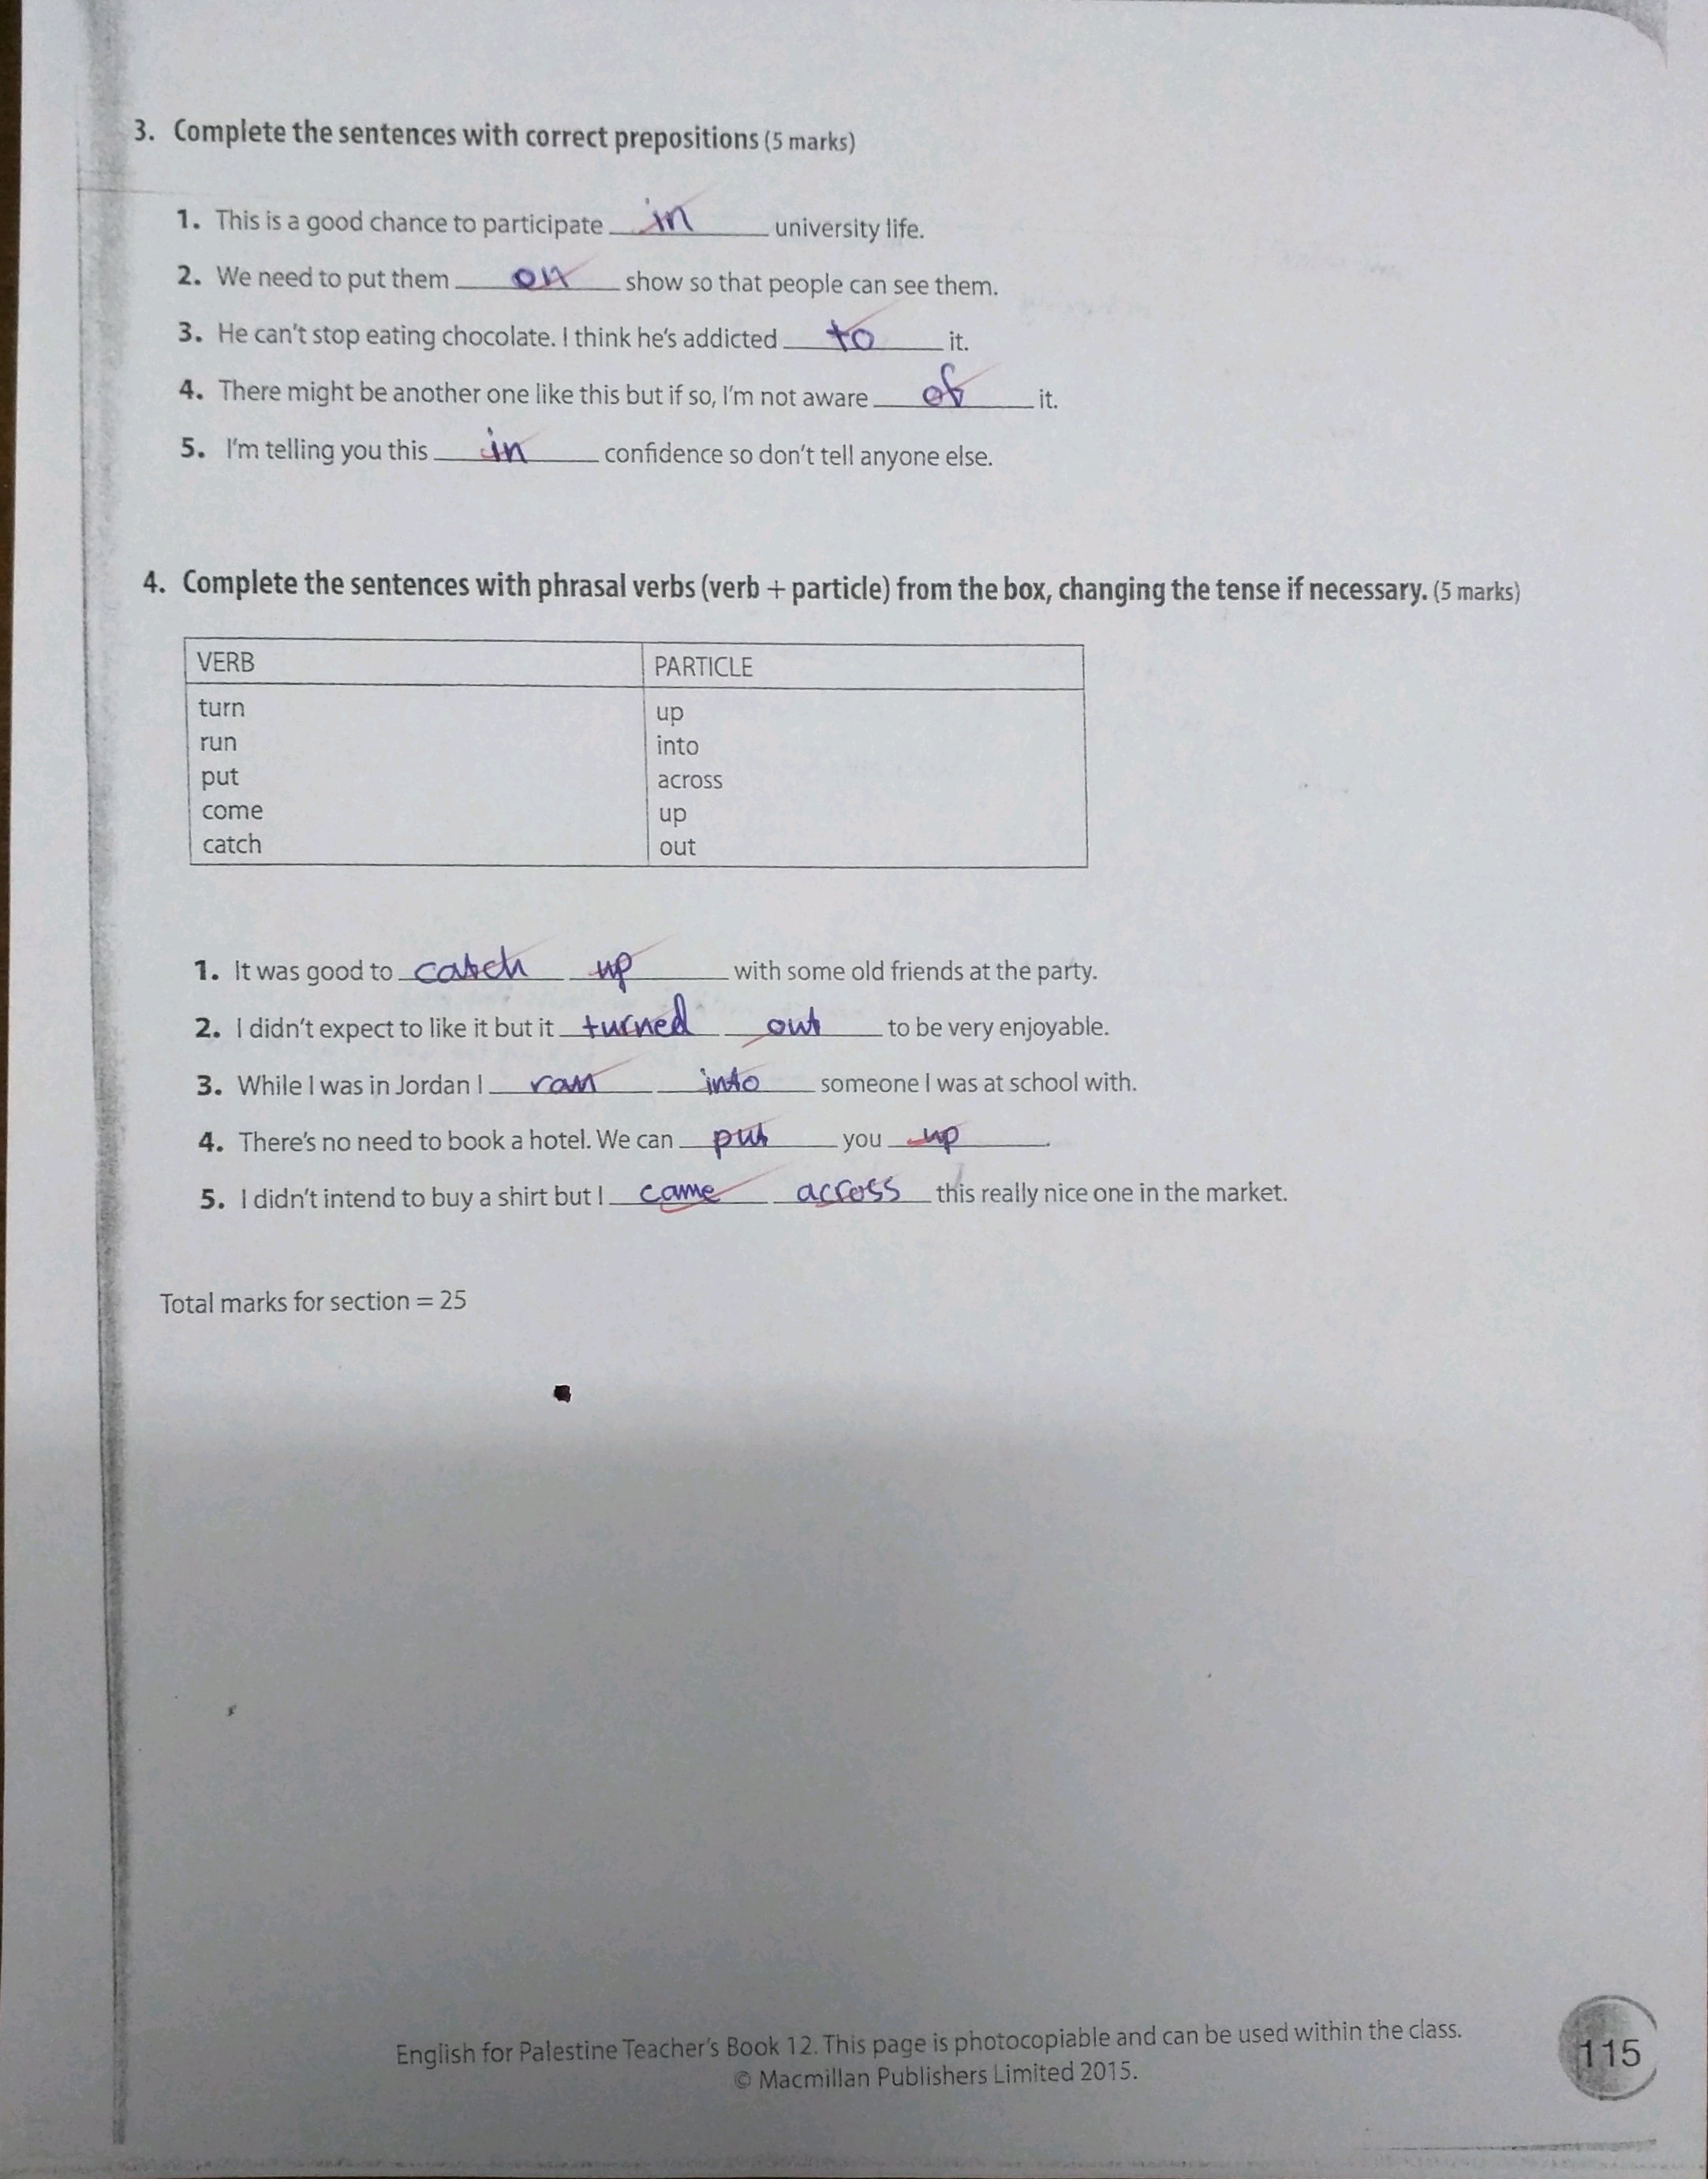 3. Complete the sentences with correct prepositions (5 marks)
1. This is a good chance to participate in university life.
2. We need to put them on show so that people can see them.
3. He can't stop eating chocolate. I think he's addicted to it.
4. There might be another one like this but if so, I'm not aware of it.
5. I'm telling you this in confidence so don't tell anyone else.
4. Complete the sentences with phrasal verbs (verb + particle) from the box, changing the tense if necessary. (5 marks)
VERB PARTICLE
turn up
run into
put across
come up
catch out
1. It was good to catch up with some old friends at the party.
2. I didn't expect to like it but it turned out to be very enjoyable.
3. While I was in Jordan I ran into someone I was at school with.
4. There's no need to book a hotel. We can put you up.
5. I didn't intend to buy a shirt but I came across this really nice one in the market.
Total marks for section = 25
English for Palestine Teacher's Book 12. This page is photocopiable and can be used within the class.
© Macmillan Publishers Limited 2015.
115